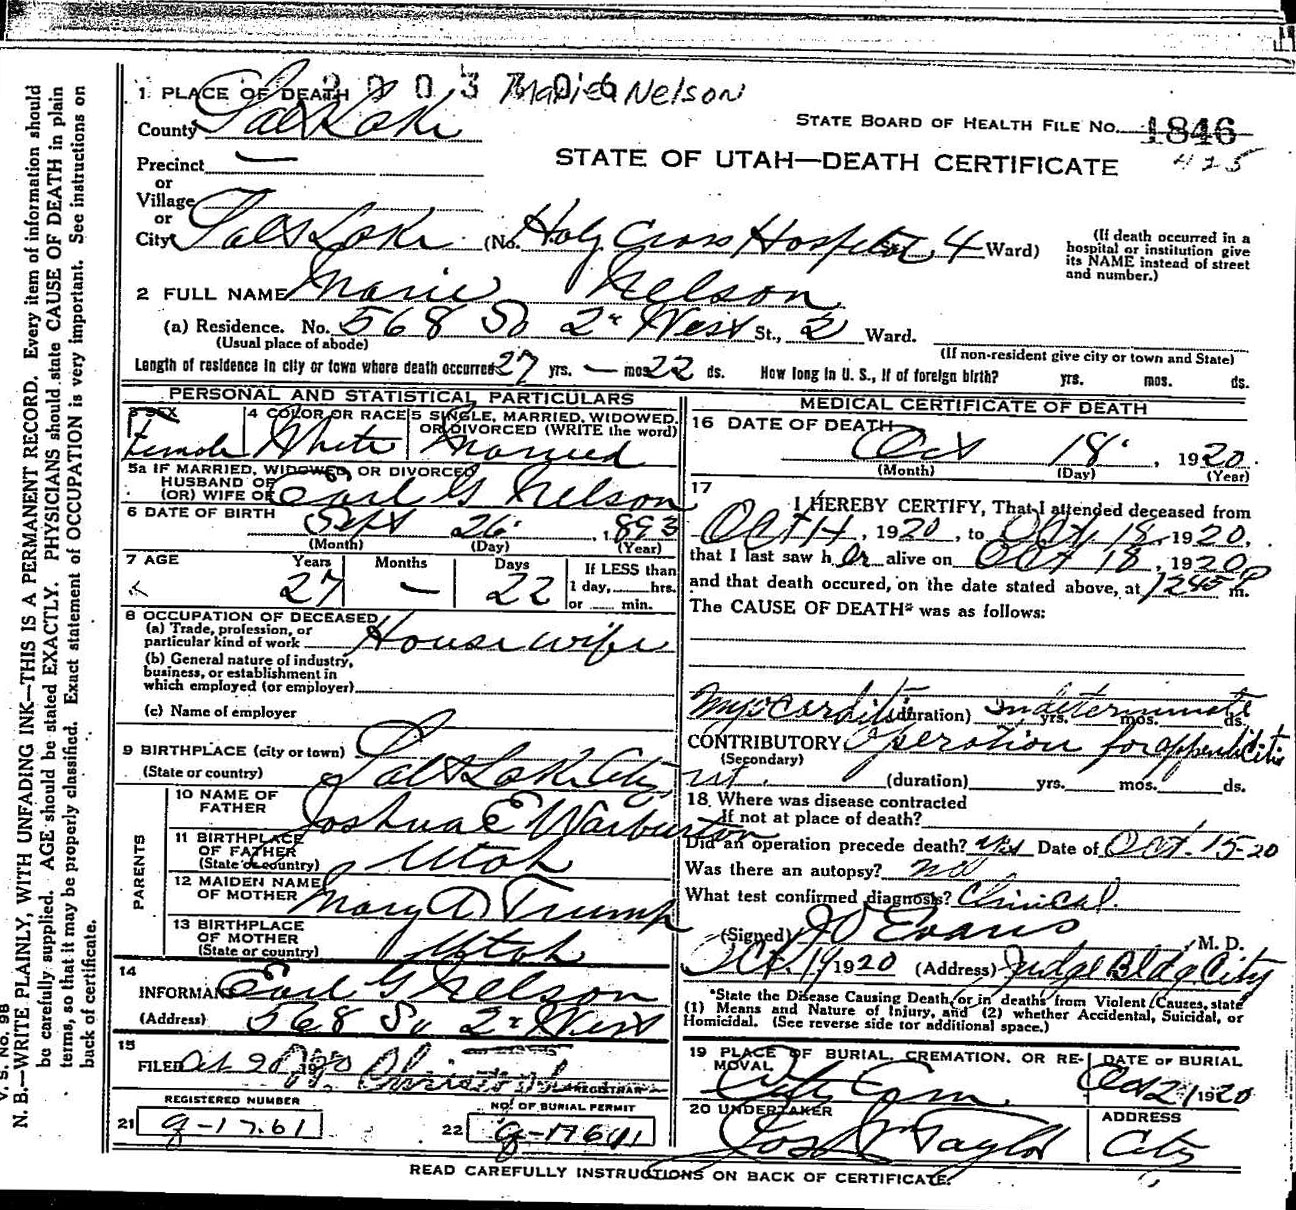 Marie Nelson
1 PLACE OF DEATH
County Salt Lake
STATE BOARD OF HEALTH FILE NO. 1846
425
STATE OF UTAH—DEATH CERTIFICATE
Precinct —
or
Village
or
City Salt Lake (No. Holy Cross Hospital 4 Ward)
(If death occurred in a
hospital or institution give
its NAME instead of street
and number.)
2 FULL NAME Marie Nelson
(a) Residence. No. 568 So 2nd West St., 2 Ward.
(Usual place of abode)
(If non-resident give city or town and State)
Length of residence in city or town where death occurred 27 yrs. — mos. 22 ds. How long in U. S., if of foreign birth? yrs. mos. ds.
PERSONAL AND STATISTICAL PARTICULARS
3 SEX Female
4 COLOR OR RACE White
5 SINGLE, MARRIED, WIDOWED,
OR DIVORCED (WRITE the word)
Married
5a IF MARRIED, WIDOWED, OR DIVORCED
HUSBAND OF
(OR) WIFE OF Earl G Nelson
6 DATE OF BIRTH Sept 26 1893
(Month) (Day) (Year)
7 AGE Years Months Days
27 — 22
If LESS than
1 day, hrs.
or min.
8 OCCUPATION OF DECEASED
(a) Trade, profession, or
particular kind of work Housewife
(b) General nature of industry,
business, or establishment in
which employed (or employer)
(c) Name of employer
9 BIRTHPLACE (city or town)
(State or country) Salt Lake City
PARENTS
10 NAME OF
FATHER Joshua E Warburton
11 BIRTHPLACE
OF FATHER
(State or country) Utah
12 MAIDEN NAME
OF MOTHER Mary A Trump
13 BIRTHPLACE
OF MOTHER
(State or country) Utah
14
INFORMANT Earl G Nelson
(Address) 568 So 2nd West
15
FILED Oct 20 1920
REGISTRAR
REGISTERED NUMBER
21 g-1761
NO. OF BURIAL PERMIT
22
MEDICAL CERTIFICATE OF DEATH
16 DATE OF DEATH
Oct 18, 1920
(Month) (Day) (Year)
17
I HEREBY CERTIFY, That I attended deceased from
Oct 14, 1920, to Oct 18 1920,
that I last saw her alive on Oct 18, 1920,
and that death occured, on the date stated above, at 1245 P m.
The CAUSE OF DEATH* was as follows:
Myocarditis (duration) Indeterminate yrs. mos. ds.
CONTRIBUTORY Operation for appendicitis
(Secondary)
(duration) yrs. mos. ds.
18 Where was disease contracted
If not at place of death?
Did an operation precede death? yes Date of Oct. 15-20
Was there an autopsy? no
What test confirmed diagnosis? Clinical
(Signed) Evans, M. D.
Oct. 19 1920 (Address) Judge Bldg City
*State the Disease Causing Death, or in deaths from Violent Causes, state
(1) Means and Nature of Injury, and (2) whether Accidental, Suicidal, or
Homicidal. (See reverse side for additional space.)
19 PLACE OF BURIAL, CREMATION, OR RE-
MOVAL
City Cem
DATE OF BURIAL
Oct 21 1920
20 UNDERTAKER
Jos Wm Taylor
ADDRESS
City
READ CAREFULLY INSTRUCTIONS ON BACK OF CERTIFICATE.
V. S. No. 98
N. B.—WRITE PLAINLY, WITH UNFADING INK—THIS IS A PERMANENT RECORD. Every item of information should
be carefully supplied. AGE should be stated EXACTLY. PHYSICIANS should state CAUSE OF DEATH in plain
terms, so that it may be properly classified. Exact statement of OCCUPATION is very important. See instructions on
back of certificate.